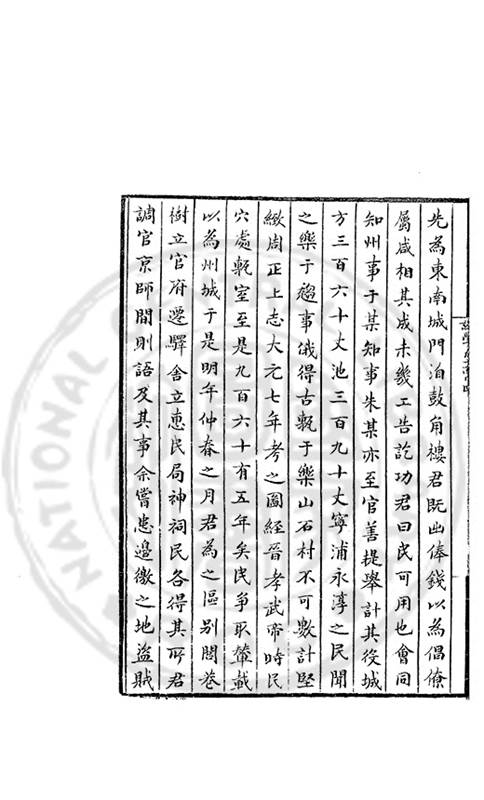 先為東南城門洎鼓角樓君既出俸錢以為倡僚
屬咸相其成未幾工告訖功君曰民可用也會同
知州事于某知事朱某亦至官善提舉計其役城
方三百六十丈池三百九十丈寧浦永淳之民聞
之樂于趨事俄得古甎于樂山石村不可數計堅
緻周正上志大元七年考之圖經晉孝武帝時民
穴處甎室至是九百六十有五年矣民争取輦載
以為州城于是明年仲春之月君為之區别閭巷
樹立官府遷驛舍立惠民局神祠民各得其所君
調官京師間則語及其事余嘗患邊徼之地盜賊
NATIONAL